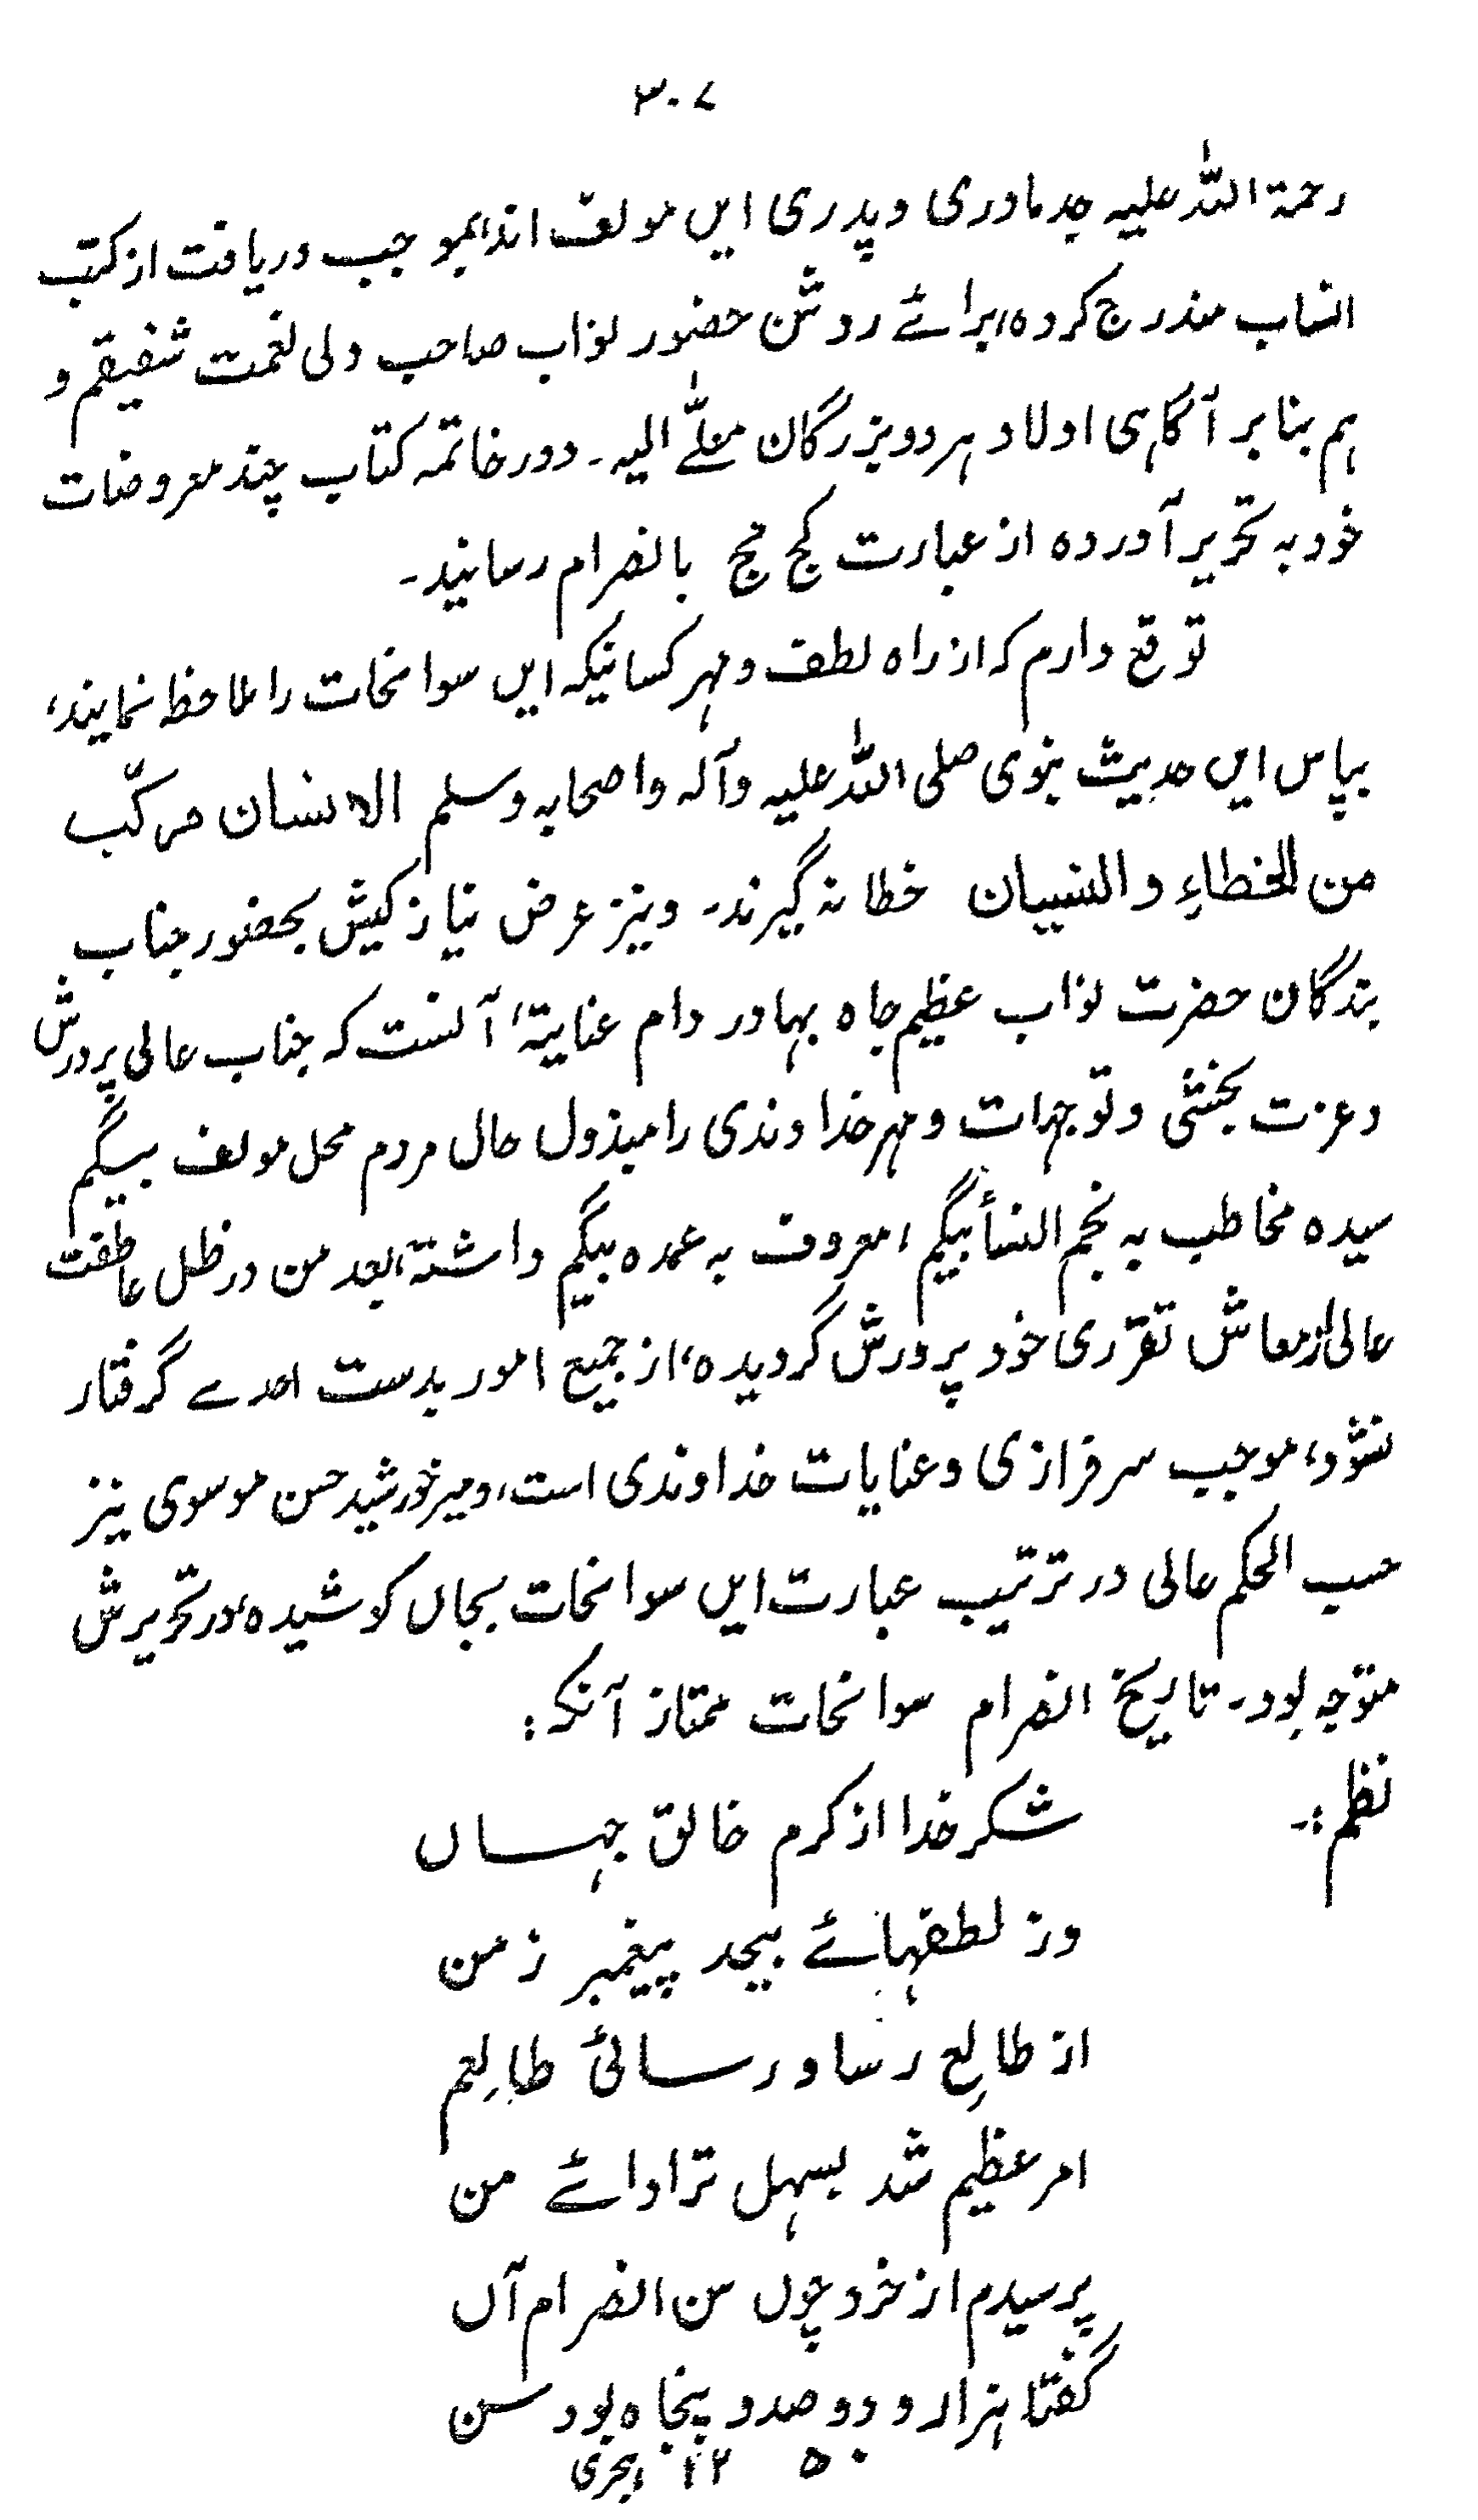 ۳۰۷
رحمۃ اللہ علیہ جد مادری و پدری ایں مولف اند، بموجب دریافت از کتب
انساب مندرج کردہ، برائے روشن حضور نواب صاحب ولی نعمت شفیقم و
ہم بنا بر آگاہی اولاد ہر دو بزرگان معلّٰے الیہ۔ و در خاتمہ کتاب چند معروضات
خود بہ تحریر آوردہ از عبارت کج مج بانصرام رسانید۔
توقع دارم کہ از راہ لطف و مہر کسانیکہ ایں سوانحات را ملاحظہ نمایند،
بپاس ایں حدیث نبوی صلی اللہ علیہ وآلہ واصحابہ وسلم الانسان مرکّب
من الخطاءِ والنسیان خطا نہ گیرند۔ و نیز عرض نیاز کیش بحضور جناب
بندگان حضرت نواب عظیم جاہ بہادر دام عنایتہٗ آنست کہ جناب عالی پرورش
و عزت بخشی و توجہات و مہر خداوندی را مبذول حال مردم محل مولف بیگم
سیدہ مخاطب بہ نجم النسأ بیگم، معروف بہ عمدہ بیگم داشتہ، بعد من در ظل عاطفت
عالی از معاش تقرّری خود پرورش گردیدہ، از جمیع امور بدست احدے گرفتار
نشود، موجب سرفرازی و عنایات خداوندی است، و میر خورشید حسن موسوی نیز
حسب الحکم عالی در ترتیب عبارت ایں سوانحات بجاں کوشیدہ، در تحریرش
متوجہ بود۔ تاریخ انصرام سوانحات ممتاز آنکہ:
نظم:۔ شکر خدا از کرم خالق جہاں
وز لطفہائے بیحد پیغمبر زمن
از طالِع رسا و رسائیٔ طالِعم
امر عظیم شد بسہل تر ادائے من
پرسیدم از خرد چوں سن انصرام آں
گفتا ہزار و دو صد و پنجاہ بود سن
۱۲۵۰ ہجری